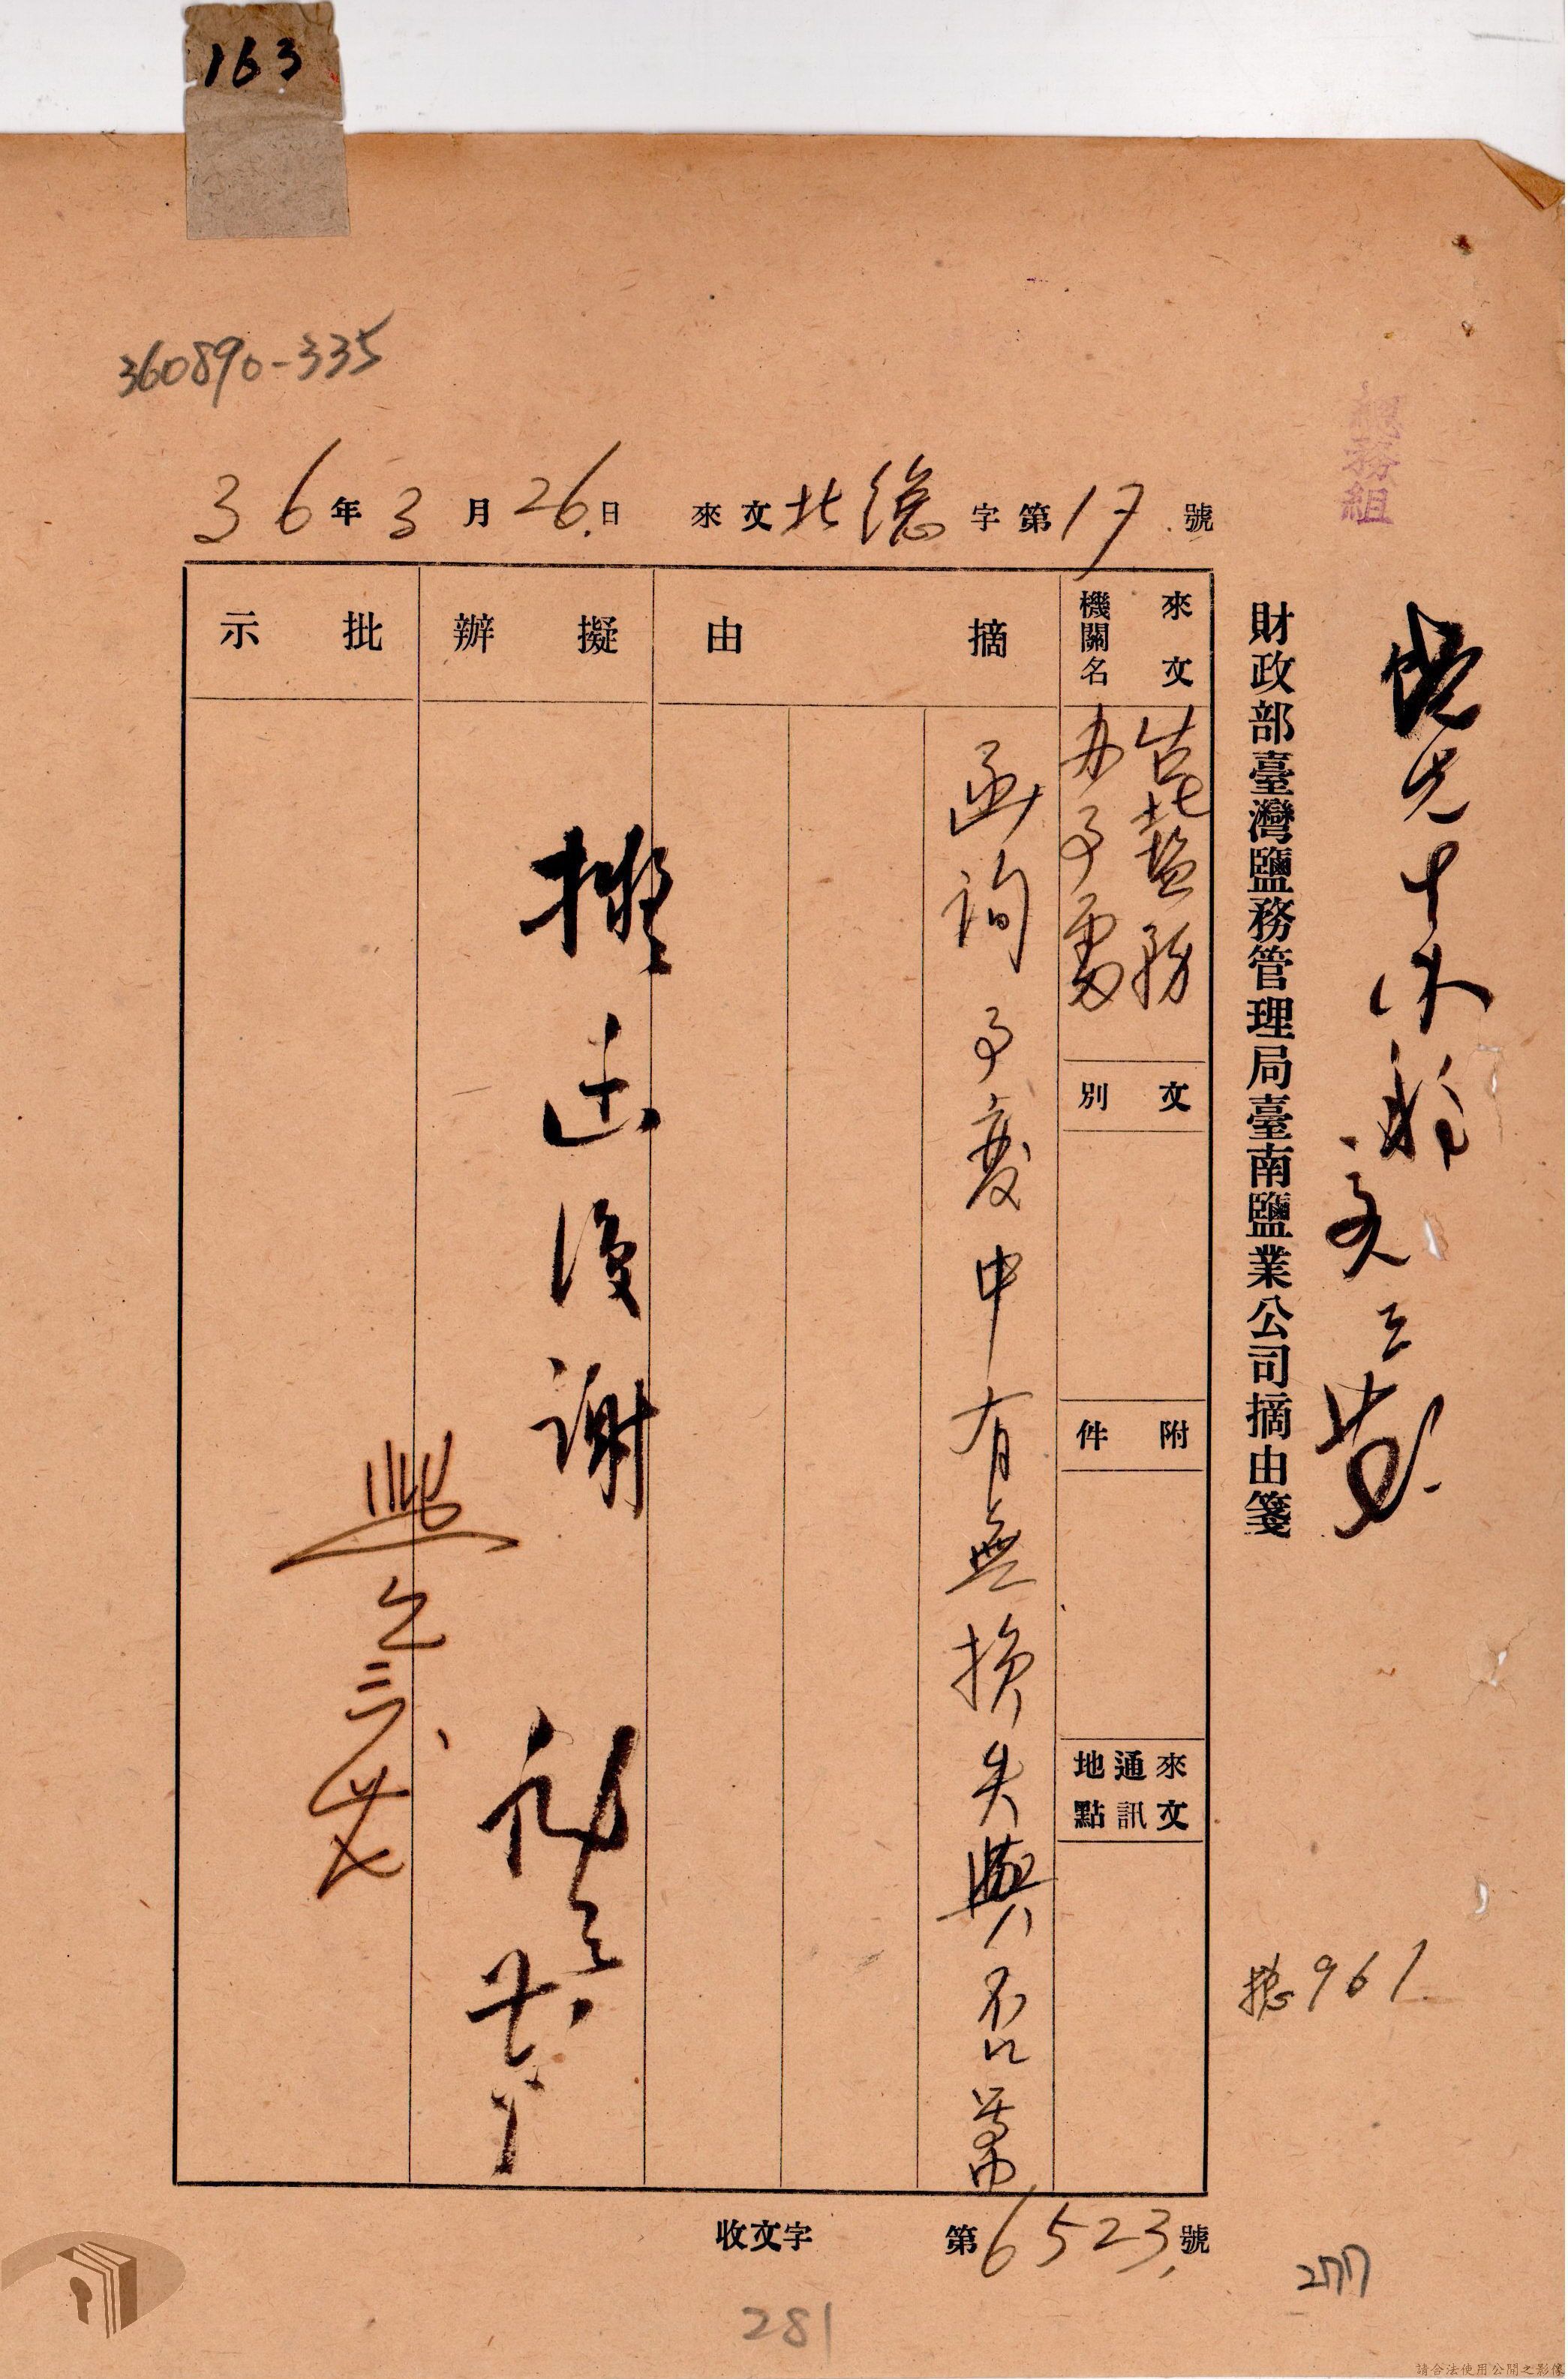 163
360890-335
總務組
財政部臺灣鹽務管理局臺南鹽業公司摘由箋
36年3月26日 來文北總字第17號
來文機關名
台北鹽務
办事處
文別
附件
來文通訊地點
摘由
函詢事變中有無損失與否
擬辦
擬函復謝
批示
總961
收文字 第6523號
277
281
請合法使用公開之影像